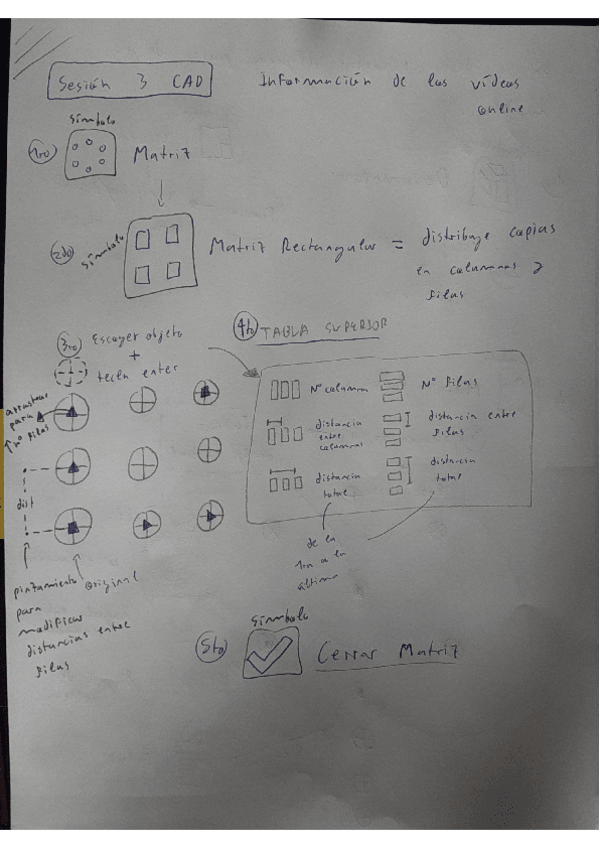 Sesión 3 CAD
Información de los vídeos
online
símbolo
1ro
Matriz
2do
símbolo
Matriz Rectangular = distribuye copias
en columnas y
filas
3ro Escoger objeto
+
tecla enter
arrastrar
para
nº filas
dist
original
para
modificar
distancias entre
filas
4to TABLA SUPERIOR
Nº columna
Nº filas
distancia
entre
columnas
distancia entre
filas
distancia
total
distancia
total
de la
1ra a la
última
5to
símbolo
Cerrar Matriz